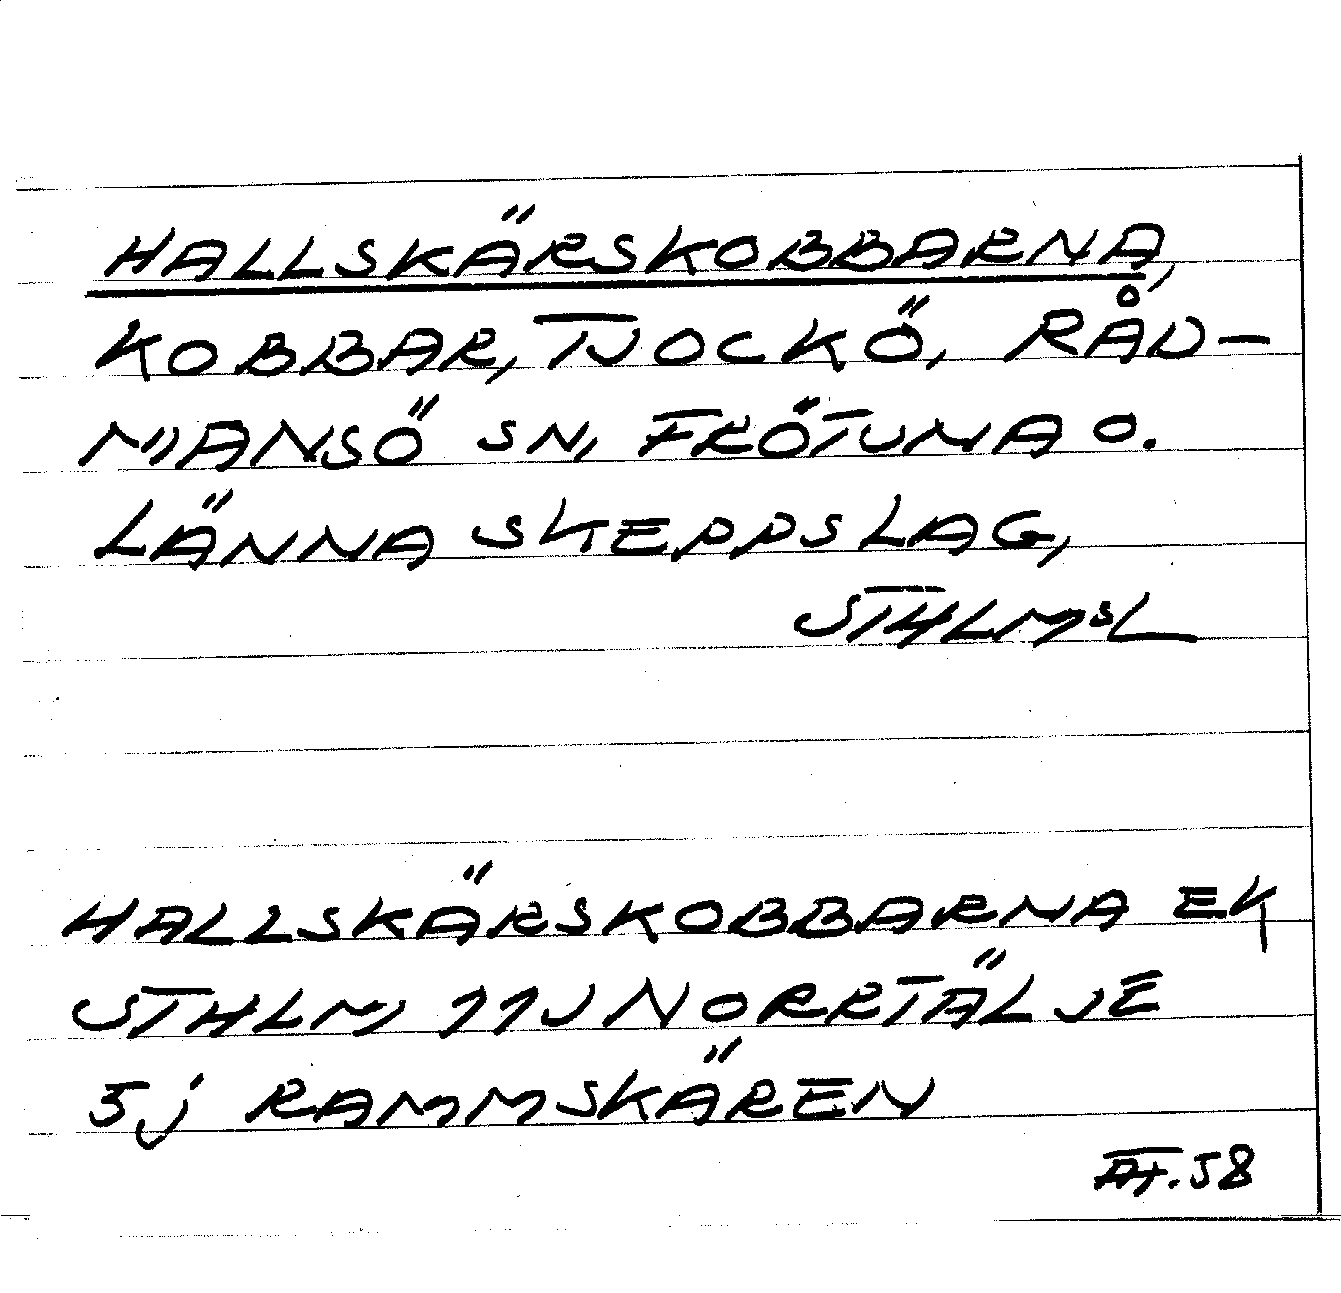 HALLSKÄRSKOBBARNA,
KOBBAR, TJOCKÖ, RÅD-
MANSÖ SN, FRÖTUNA O.
LÄNNA SKEPPSLAG,
STHLMSL
HALLSKÄRSKOBBARNA EK
STHLM 11J NORRTÄLJE
5j RAMMSKÄREN
58